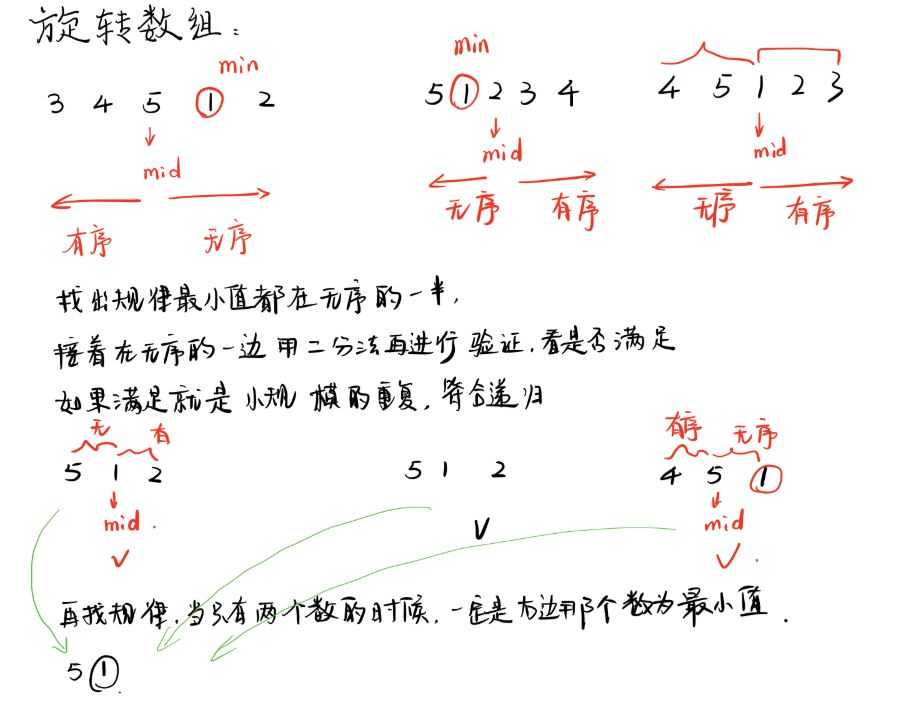 旋转数组：
min min
3 4 5 1 2 5 1 2 3 4 4 5 1 2 3
mid mid mid
有序 无序 无序 有序 无序 有序
找出规律最小值都在无序的一半，
接着在无序的一边用二分法再进行验证，看是否满足
如果满足就是小规模的重复，符合递归
无 有 有序 无序
5 1 2 5 1 2 4 5 1
mid. mid
再找规律，当只有两个数的时候，一定是右边那个数为最小值.
5 1